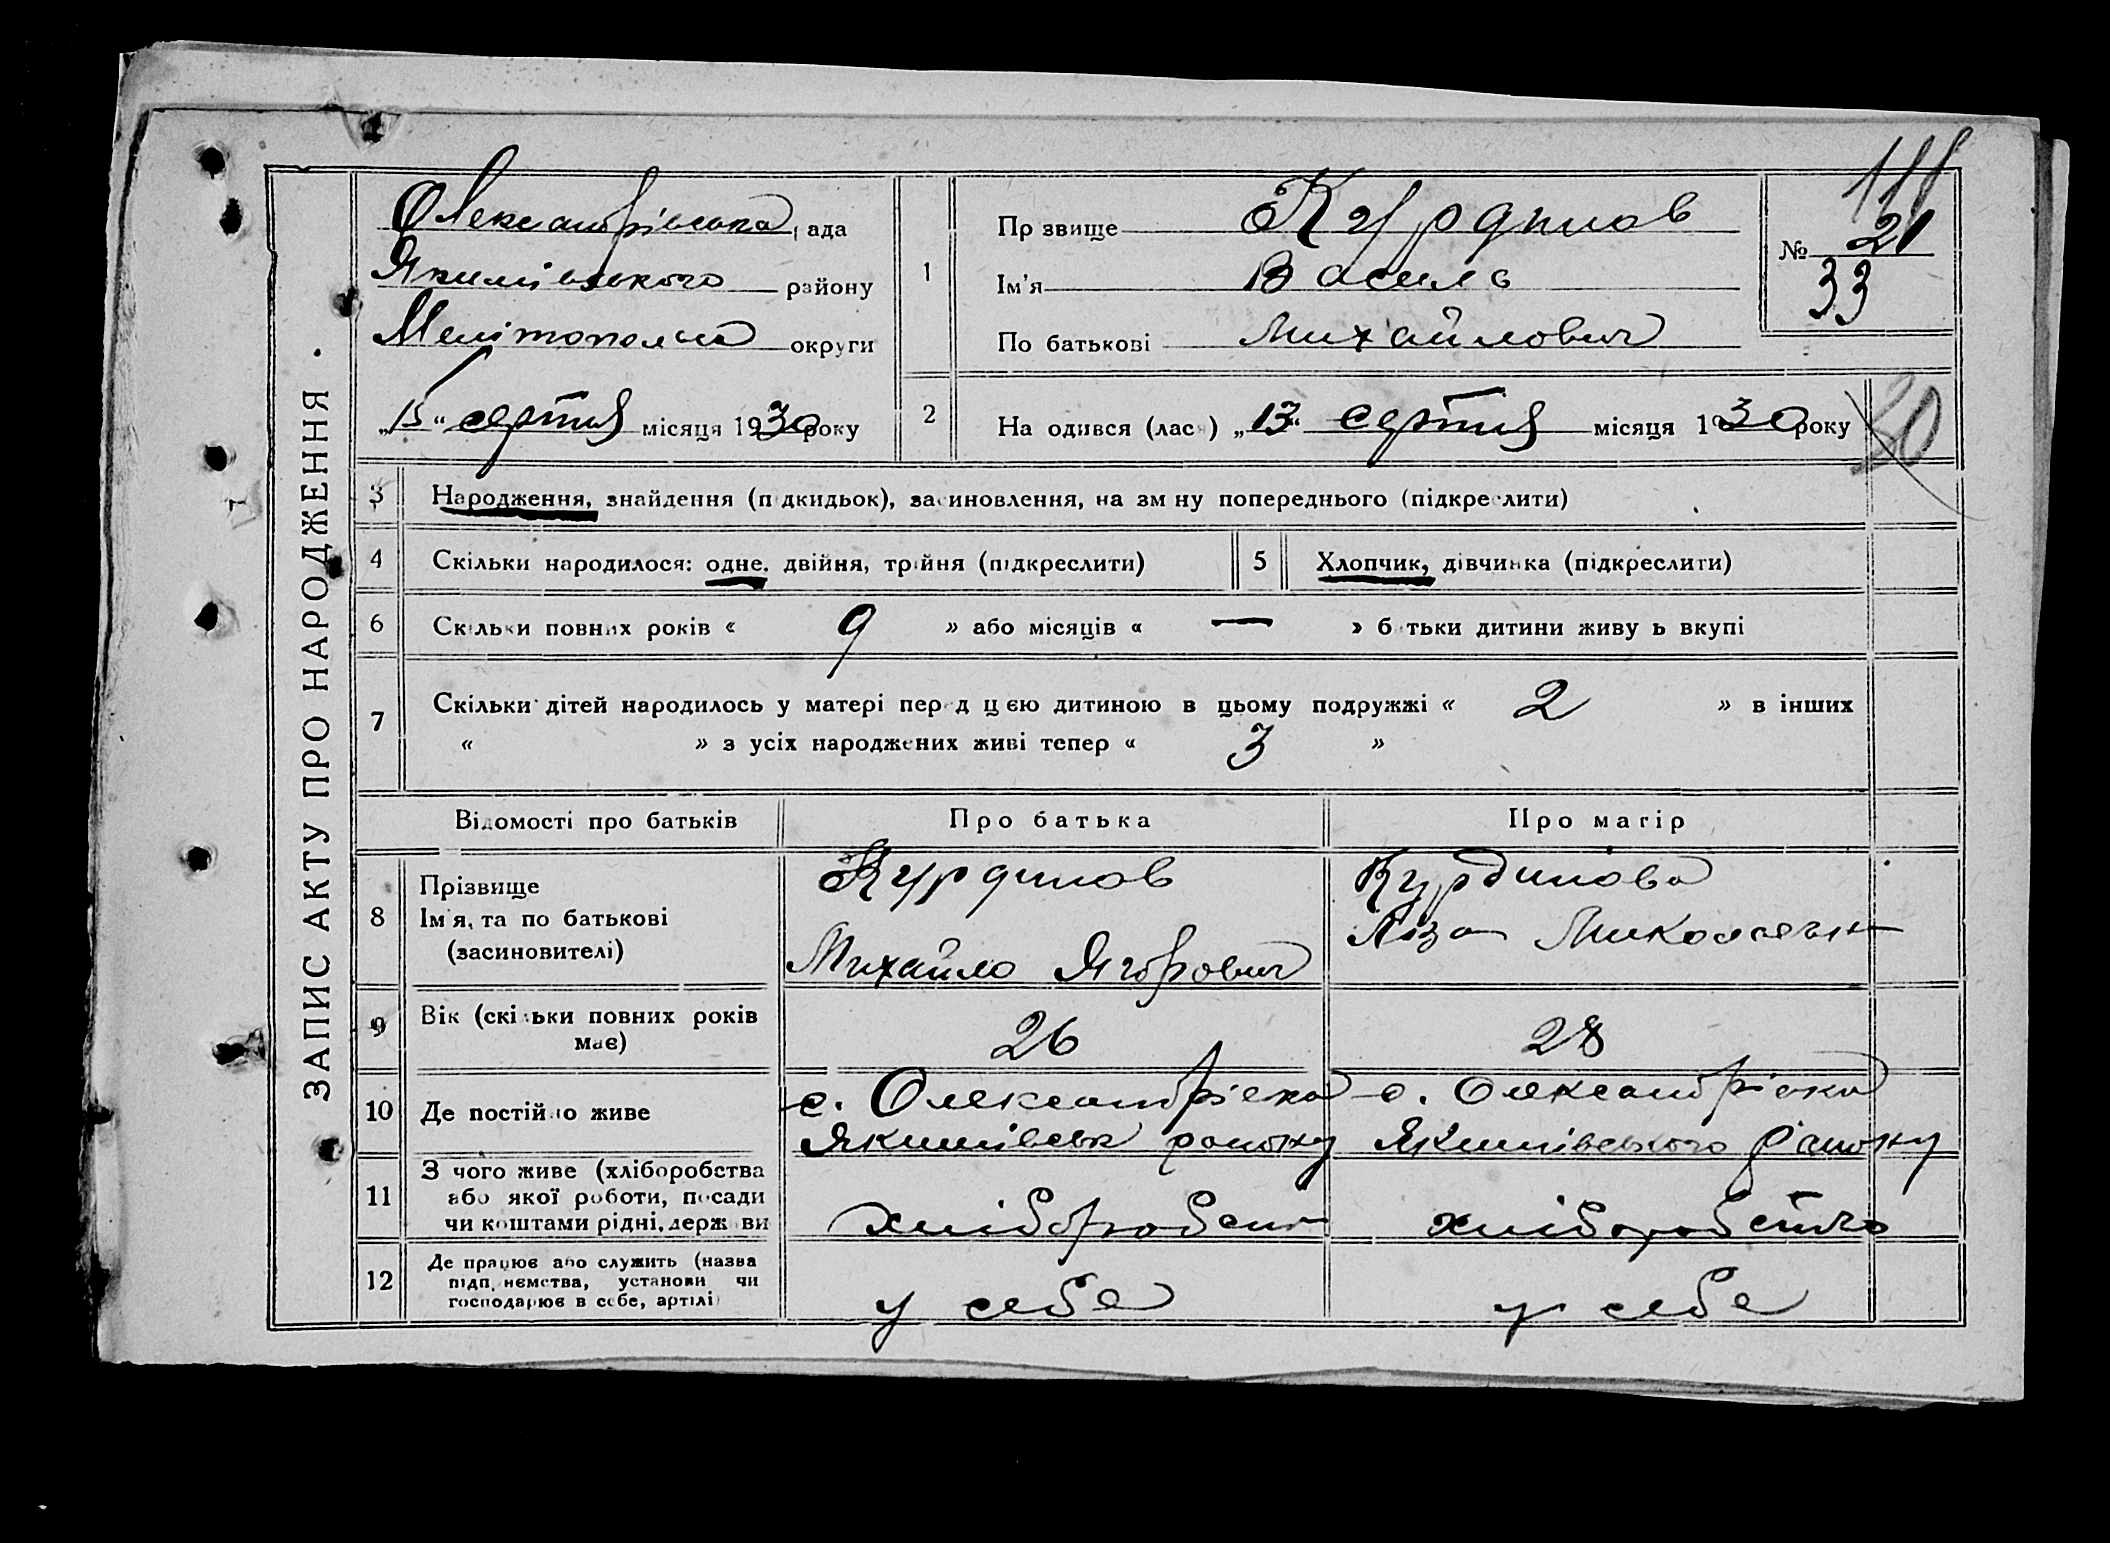 ЗАПИС АКТУ ПРО НАРОДЖЕННЯ.
Олександрівська рада
Якимівського району
Мелітопольс округи
„15“ серпня місяця 1930 року
1
Прізвище Курдинов
Ім'я Василь
По батькові Михайлович
№ 21
33
2
Народився (лася) „13“ серпня місяця 1930 року
30
3 Народження, знайдення (підкидьок), засиновлення, на зміну попереднього (підкреслити)
4 Скільки народилося: одне, двійня, трійня (підкреслити) 5 Хлопчик, дівчинка (підкреслити)
6 Скільки повних років « 9 » або місяців « — » батьки дитини живуть вкупі
7 Скільки дітей народилось у матері перед цією дитиною в цьому подружжі « 2 » в інших
« » з усіх народжених живі тепер « 3 »
Відомості про батьків Про батька Про матір
8 Прізвище
Ім'я, та по батькові
(засиновителі)
Курдинов
Михайло Ягорович
Курдинова
Ліза Миколаевн
9 Вік (скільки повних років
має)
26
28
10 Де постійно живе
с. Олександрівка
Якимівськ району
с. Олександрівка
Якимівського району
11 З чого живе (хліборобства
або якої роботи, посади
чи коштами рідні, держави
хліборобств
хліборобство
12 Де працює або служить (назва
підприємства, установи чи
господарює в себе, артілі)
у себе
у себе